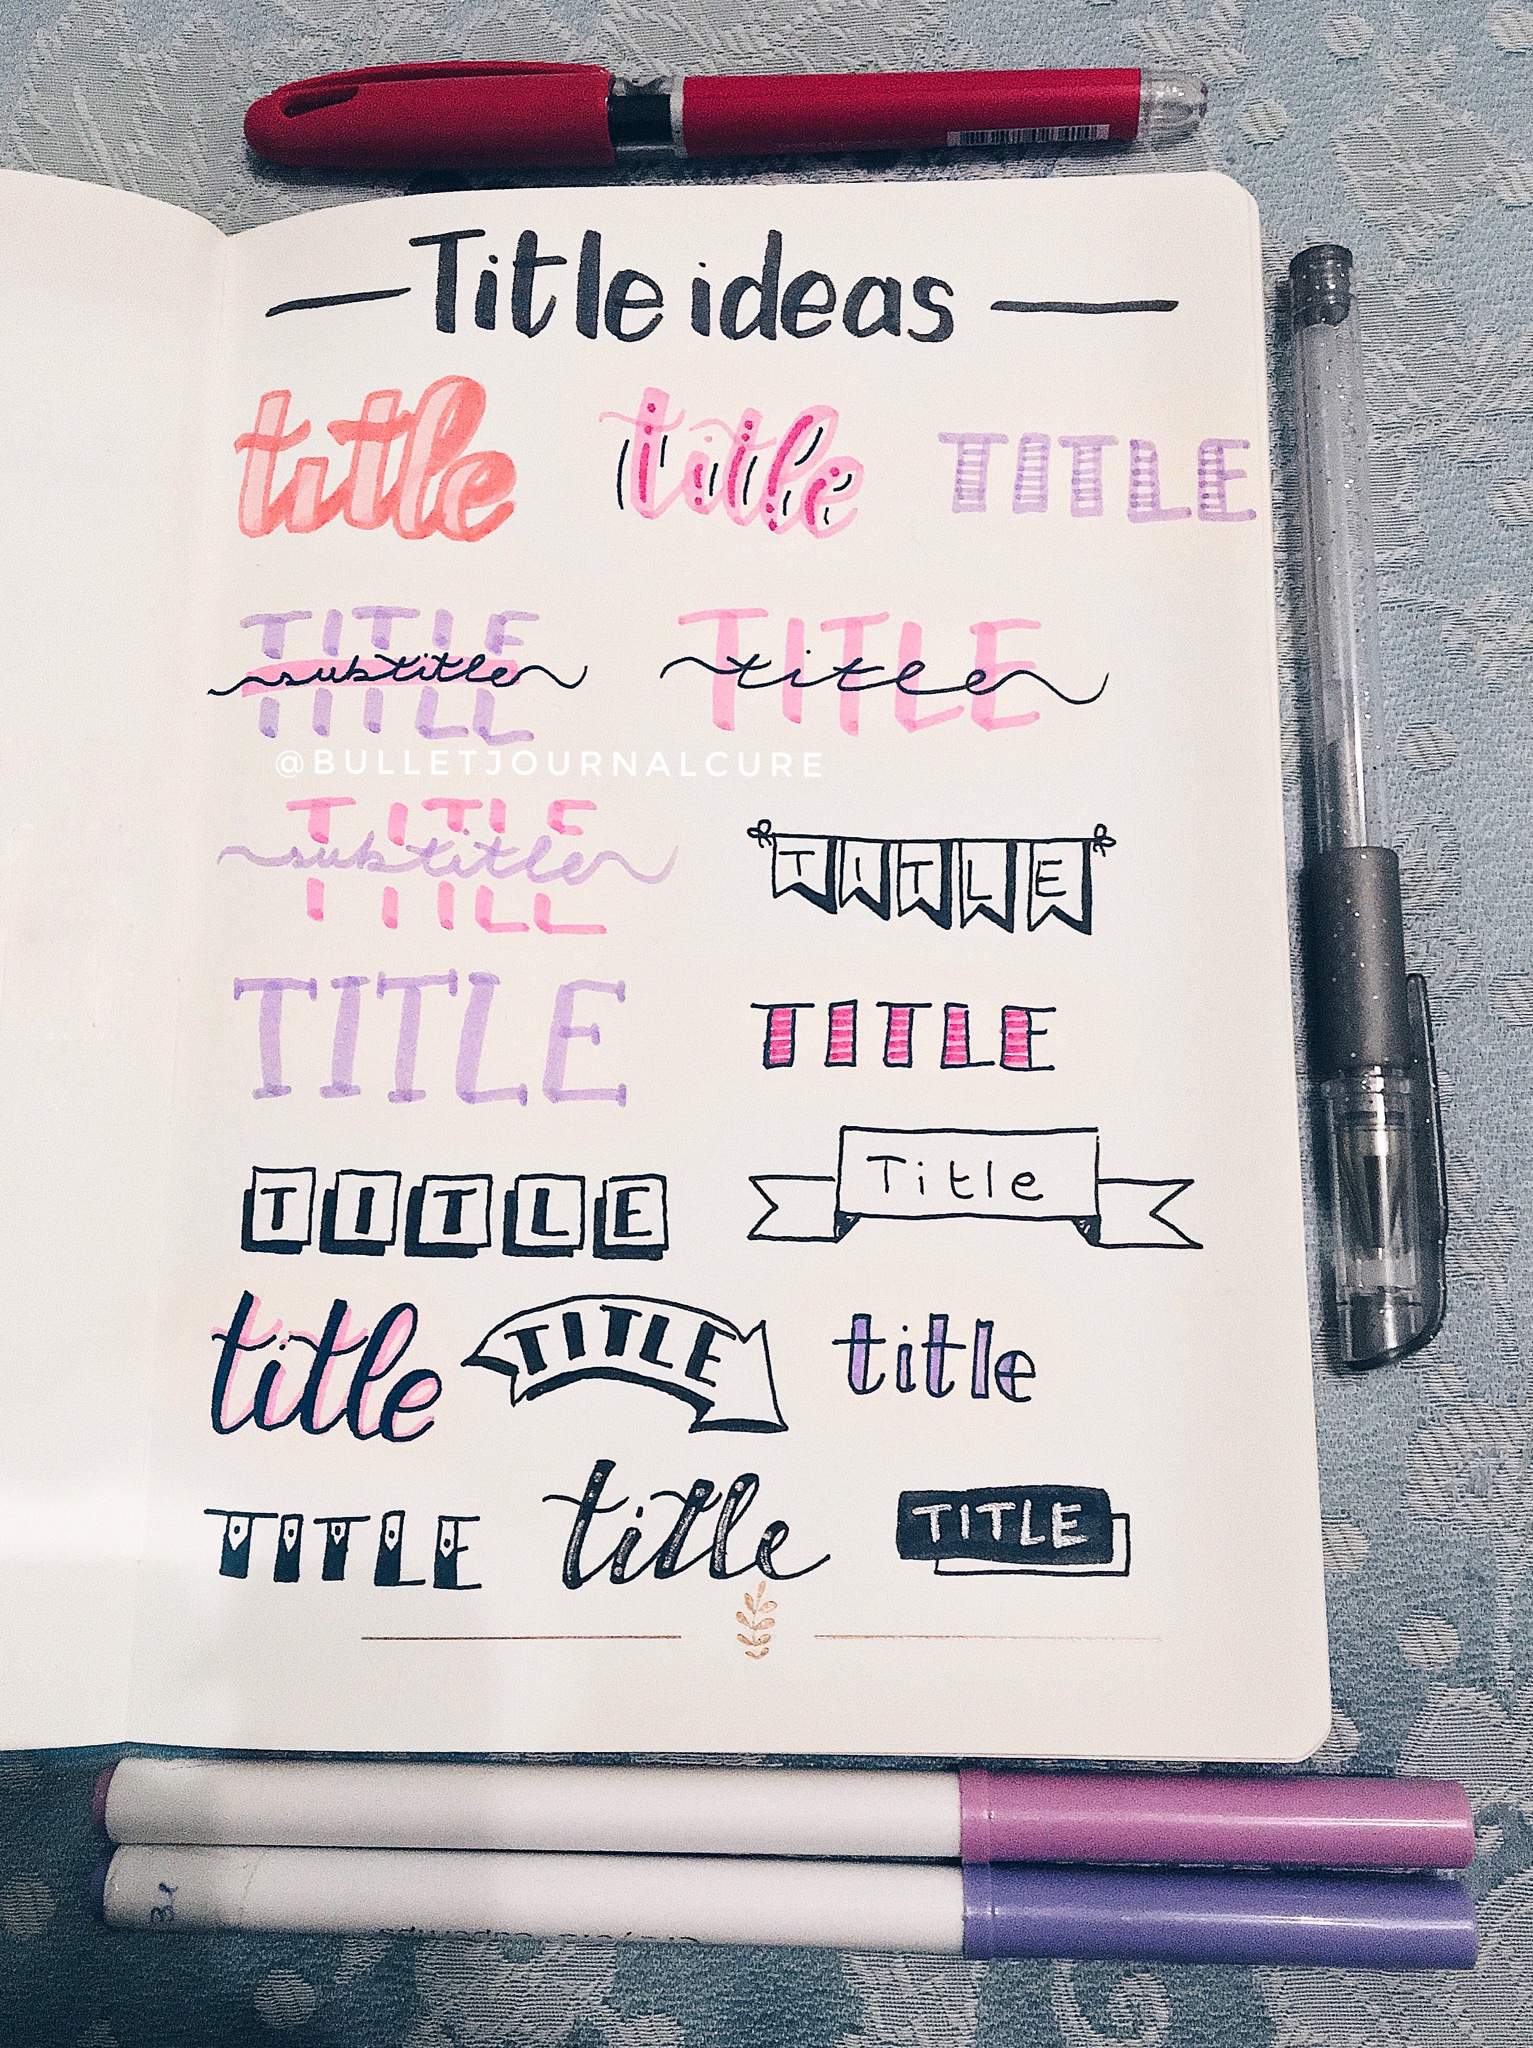 Title ideas
title title TITLE
TITLE
subtitle
TITLE
title
@BULLETJOURNALCURE
TITLE
subtitle
TITLE
TITLE
TITLE
TITLE
Title
title TITLE title
TITLE title TITLE
31